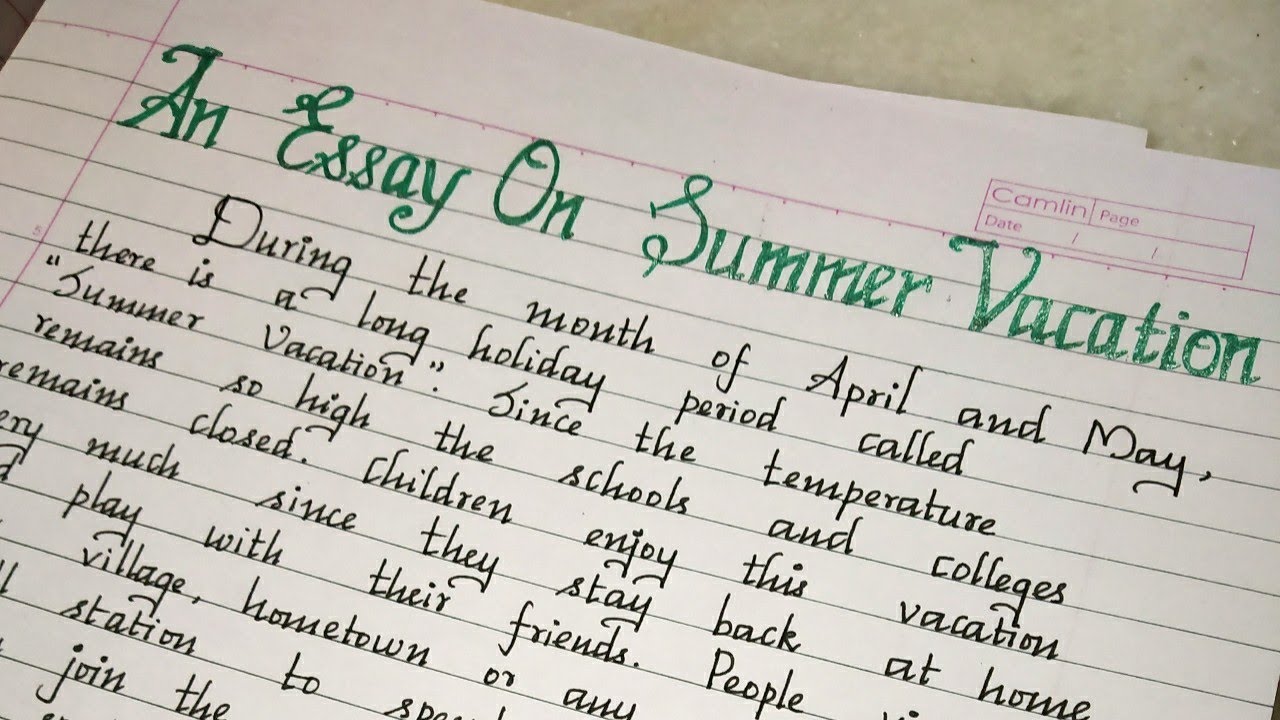 An Essay On Summer Vacation
Camlin Page
Date / /
During the month of April and May,
there is a long holiday period called
"Summer Vacation". Since the temperature
remains so high the schools and colleges
remains closed. Children enjoy this vacation
much since they stay back at home
play with their friends. People
village, hometown or any
station to
join the